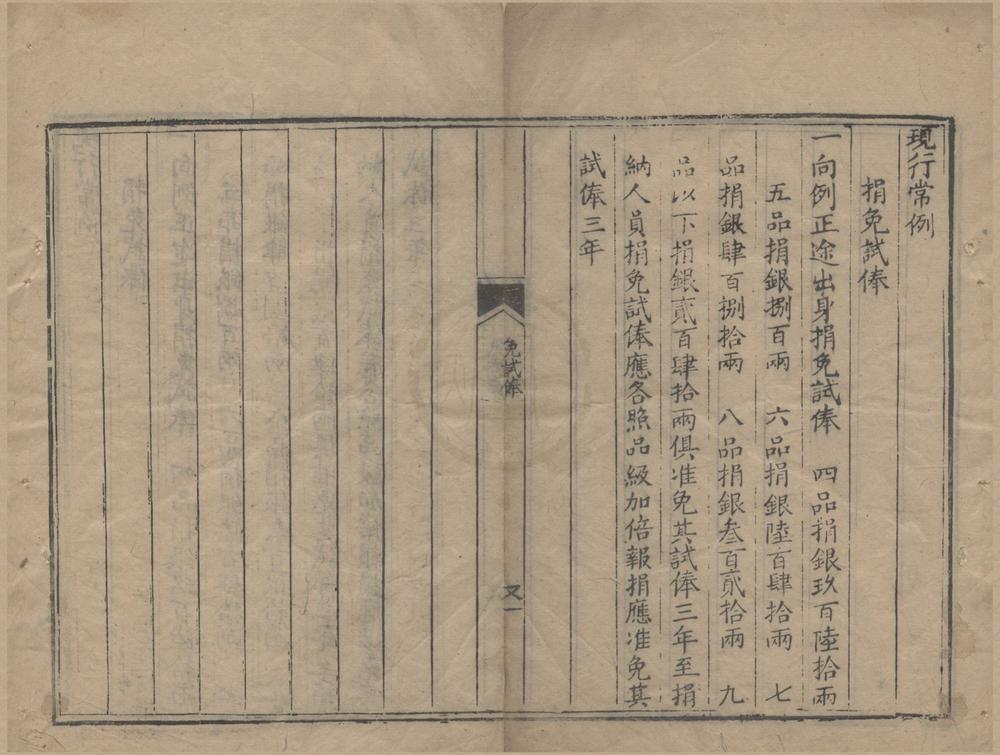 現行常例
捐免試俸
一向例正途出身捐免試俸 四品捐銀玖百陸拾兩
五品捐銀捌百兩 六品捐銀陸百肆拾兩 七
品捐銀肆百捌拾兩 八品捐銀叁百貳拾兩 九
品以下捐銀貳百肆拾兩俱准免其試俸三年至捐
納人員捐免試俸應各照品級加倍報捐應准免其
試俸三年
免試俸
又一